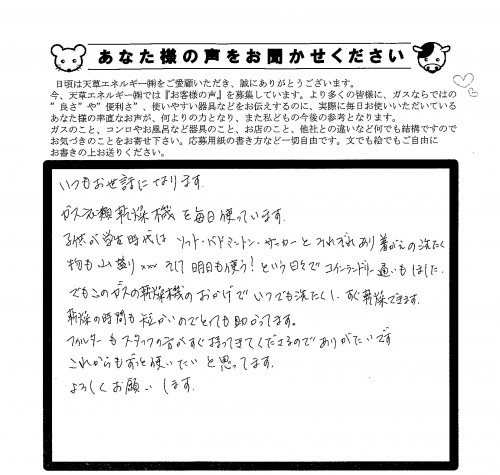 あなた様の声をお聞かせください
日頃は天草エネルギー㈱をご愛顧いただき、誠にありがとうございます。
今、天草エネルギー㈱では『お客様の声』を募集しています。より多くの皆様に、ガスならではの
”良さ”や”便利さ”、使いやすい器具などをお伝えするのに、実際に毎日お使いいただいている
あなた様の率直なお声が、何よりの力となり、また私どもの今後の参考となります。
ガスのこと、コンロやお風呂など器具のこと、お店のこと、他社との違いなど何でも結構ですので
お気づきのことをお寄せ下さい。応募用紙の書き方など一切自由です。文でも絵でもご自由に
お書きの上お送りください。
いつもお世話になります。
ガス衣類乾燥機を毎日使っています。
子供が学生時代は ソフト・バドミントン・サッカーとそれぞれあり着がえの洗たく
物も山盛り xxx そして 明日も使う！という日々でコインランドリー通いもしました。
でもこのガスの乾燥機のおかげでいつでも洗たくし、すぐ乾燥できます。
乾燥の時間も短かいのでとても助かってます。
フィルターもスタッフの方がすぐ持ってきてくださるのでありがたいです
これからもずっと使いたいと思ってます。
よろしくお願いします。